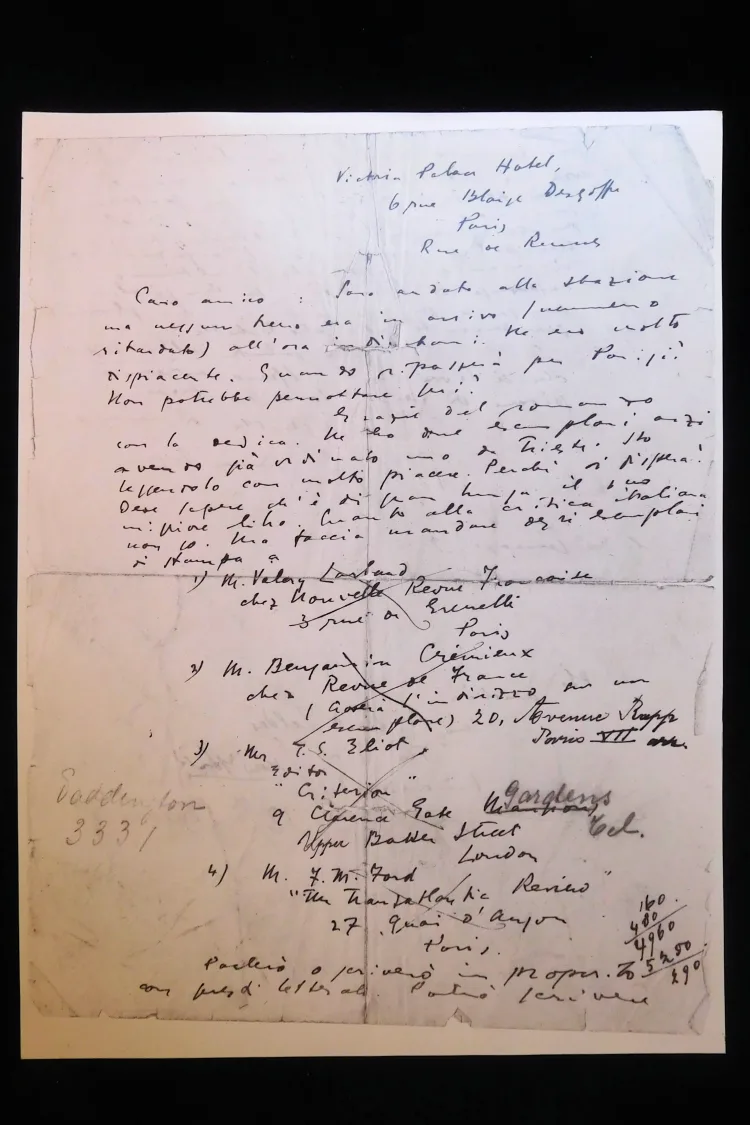 Victoria Palace Hotel,
6 rue Blaise Desgoffe
Paris
Rue de Rennes
Caro amico: Sono andato alla stazione
ma nessun treno era in arrivo (nemmeno
ritardato) all'ora indicatami. Ne ero molto
dispiacente. Quando ripasserà per Parigi?
Non potrebbe pernottare qui?
Grazie del romanzo
con la dedica. Ne ho due esemplari anzi
avendo già ordinato uno a Trieste. Sto
leggendolo con molto piacere. Perchè si dispera?
Deve sapere ch'è di gran lunga il suo
migliore libro. Quanto alla critica italiana
non so. Ma faccia mandare degli esemplari
di stampa a
1) M. Valery Larbaud
chez Nouvelle Revue Française
3 rue de Grenelle
Paris
2) M. Benjamin Crémieux
chez Revue de France
(Avrà l'indirizzo su un
esemplare) 20, Avenue Rapp
Paris VII arr.
3) Mr T.S. Eliot
Editor
"Criterion"
9 Clarence Gate Gardens
Upper Baker Street Tel.
London
Paddington
3331
4) M. F.M. Ford
"The Transatlantic Review"
27 Quai d'Anjou
Paris.
160
480
4960
5250
290
Parlerò o scriverò in proposito
con questi letterati. Potrò scrivere